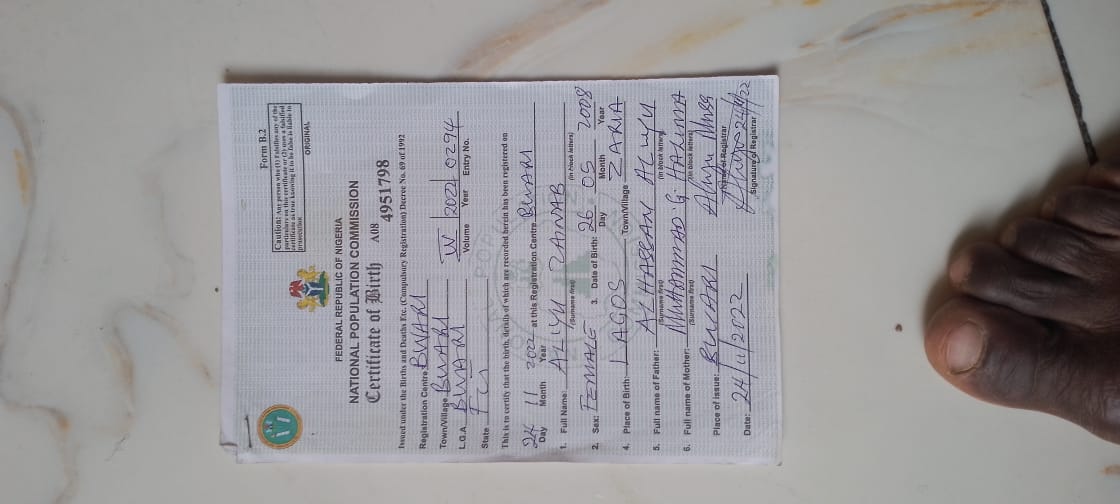 Form B.2
Caution: Any person who (1) Falsifies any of the
particulars on this certificate or (2) uses a falsified
certificate as true knowing it to be false is liable to
prosecution
ORIGINAL
FEDERAL REPUBLIC OF NIGERIA
NATIONAL POPULATION COMMISSION
Certificate of Birth A08 4951798
Issued under the Births and Deaths Etc. (Compulsory Registration) Decree No. 69 of 1992
Registration Centre BWARI
Town/Village BWARI IV 2022 0294
L.G.A BWARI Volume Year Entry No.
State FCT
This is to certify that the birth, details of which are recorded herein has been registered on
24 11 2022 at this Registration Centre BWARI
Day Month Year
1. Full Name: ALIYU ZAINAB
(Surname first) (in block letters)
2. Sex: FEMALE 3. Date of Birth: 26 05 2008
Day Month Year
4. Place of Birth: LAGOS Town/Village ZARIA
5. Full name of Father: ALHASSAN ALIYU
(Surname first) (in block letters)
6. Full name of Mother: MUHAMMAD G. HALIMA
(Surname first) (in block letters)
Place of issue: BWARI
Name of Registrar
Date: 24/11/2022 24/11/22
Signature of Registrar